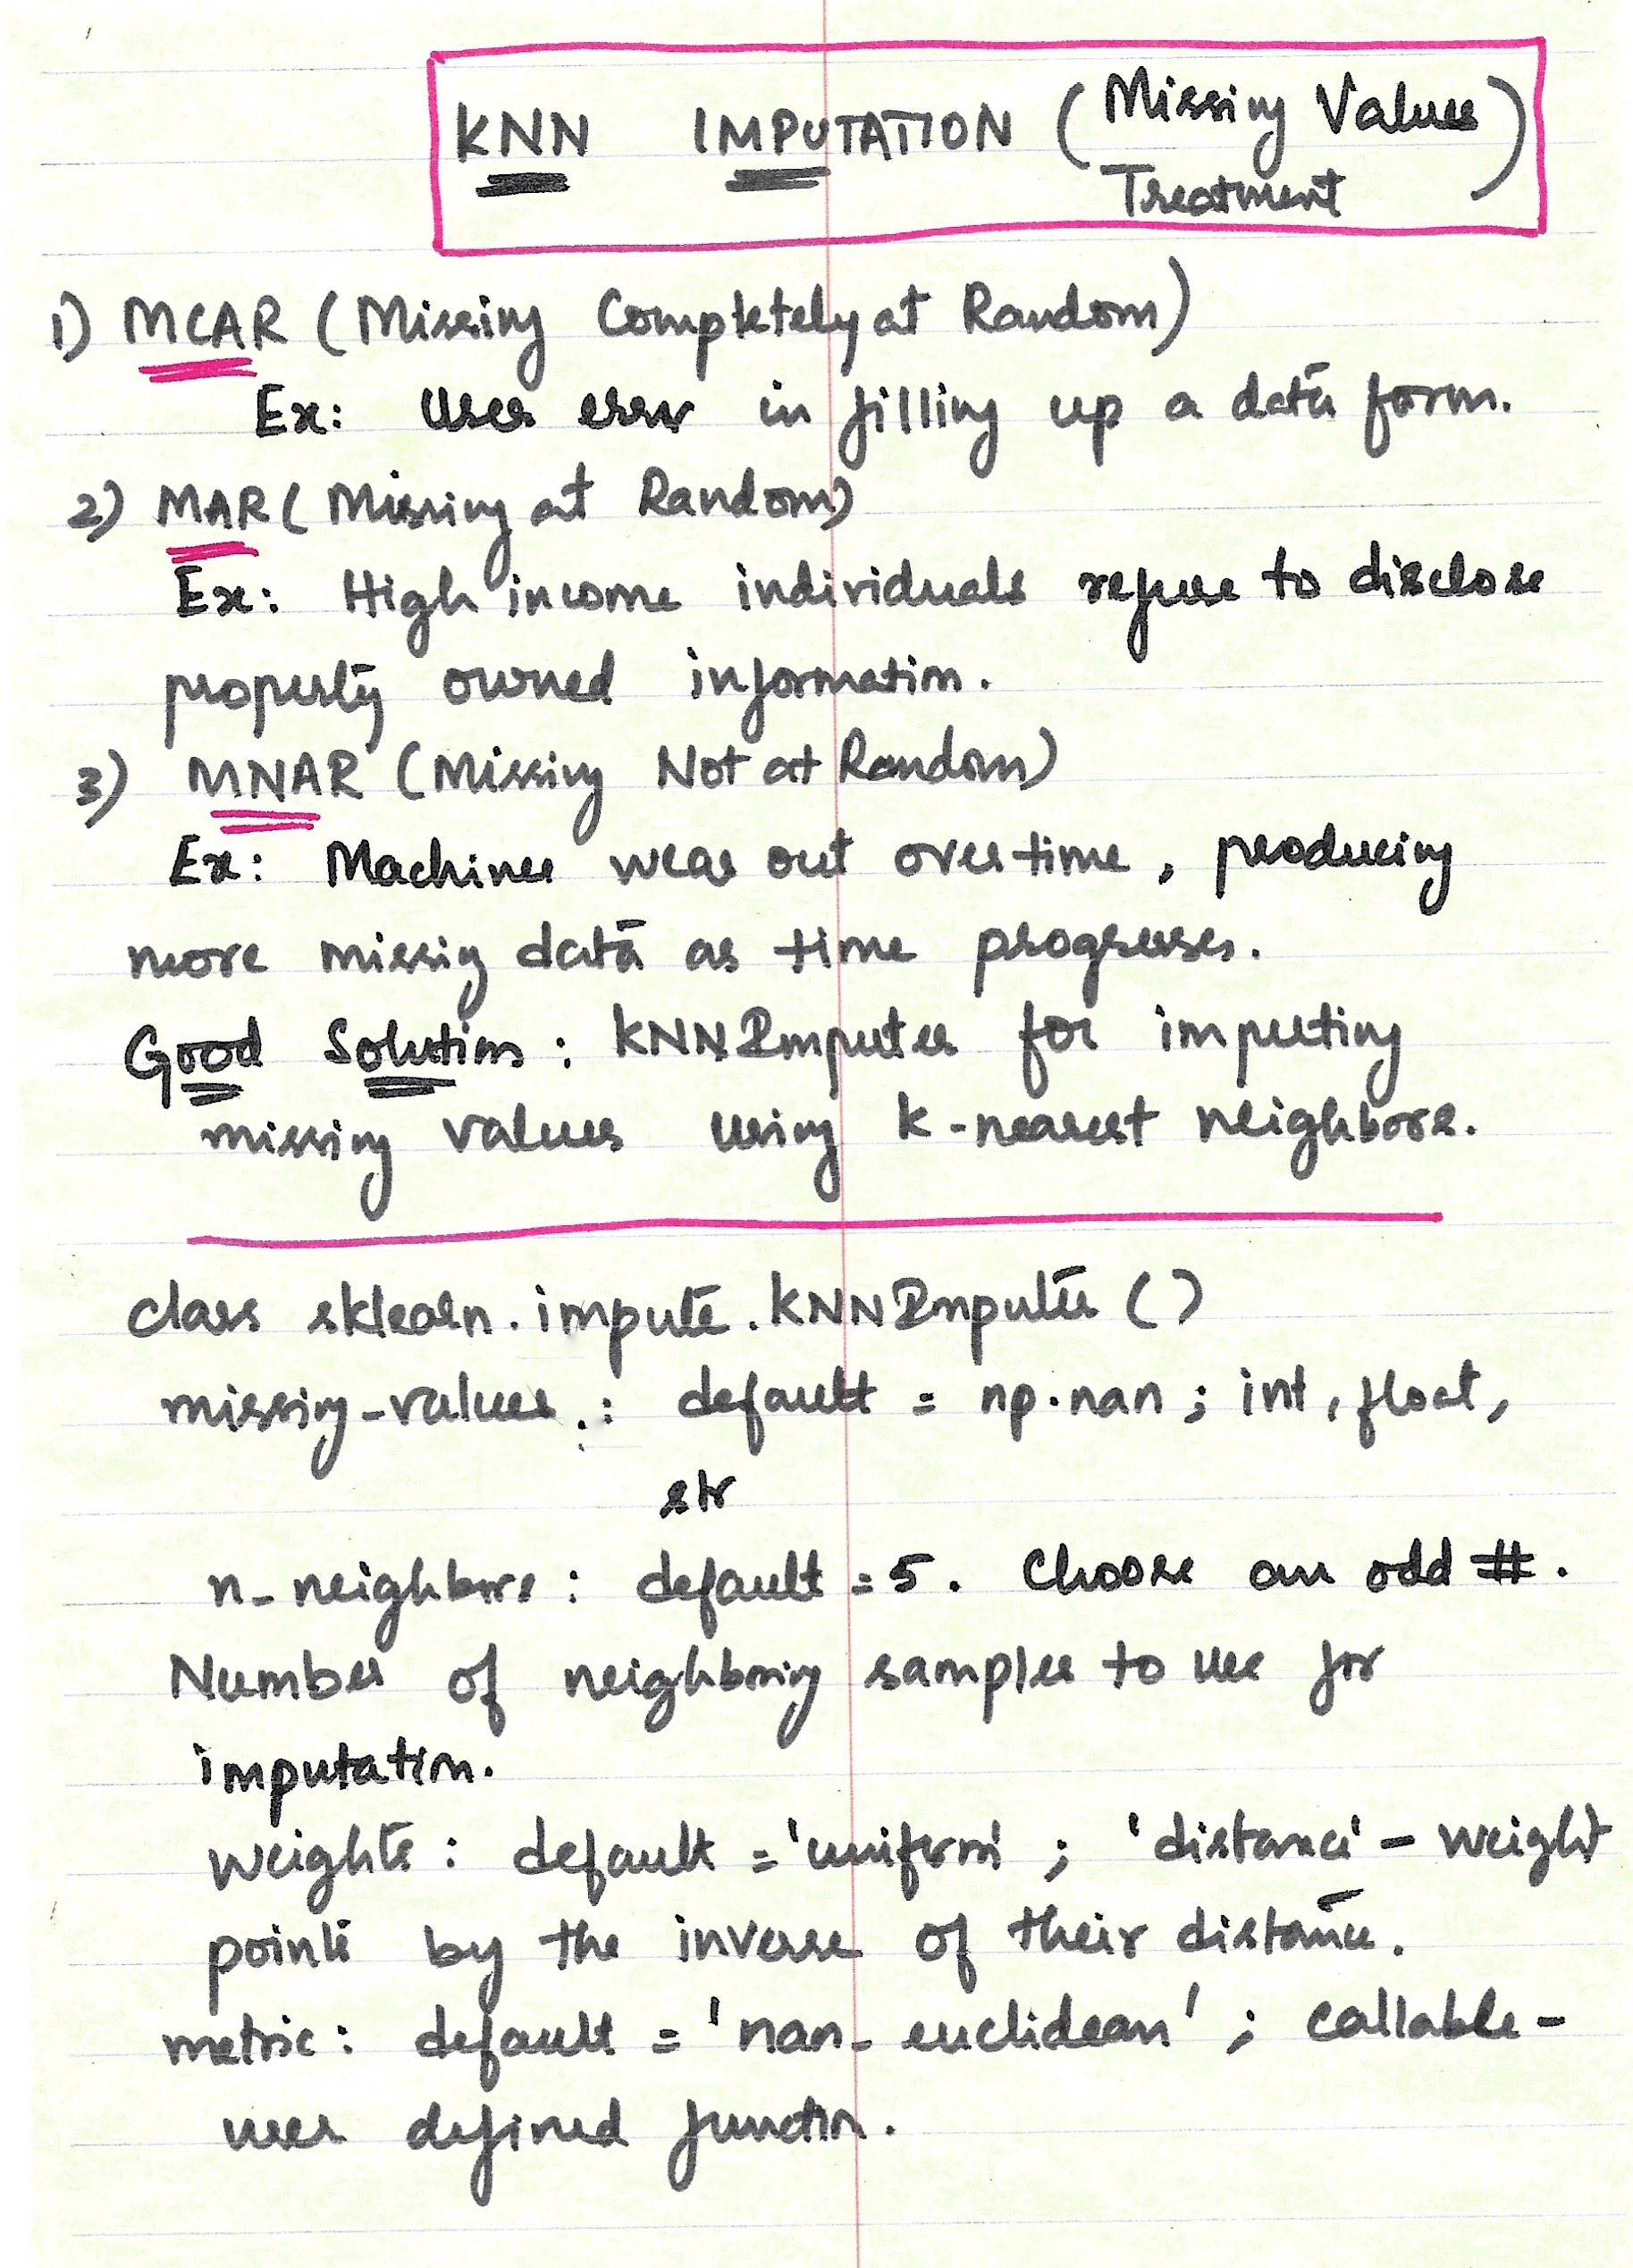 KNN IMPUTATION (Missing Values Treatment)
1) MCAR (Missing Completely at Random)
Ex: User error in filling up a data form.
2) MAR (Missing at Random)
Ex: High income individuals refuse to disclose
property owned information.
3) MNAR (Missing Not at Random)
Ex: Machines wear out over time, producing
more missig data as time progresses.
Good Solution: KNNImputer for imputing
missing values using k-nearest neighbors.
class sklearn.impute.KNNImputer ()
missing-values : default = np.nan ; int, float,
str
n_neighbors : default = 5. Choose an odd #.
Number of neighboring samples to use for
imputation.
weights : default = 'uniform' ; 'distance' - weight
points by the inverse of their distance.
metric : default = 'nan_euclidean' ; callable -
user defined function.